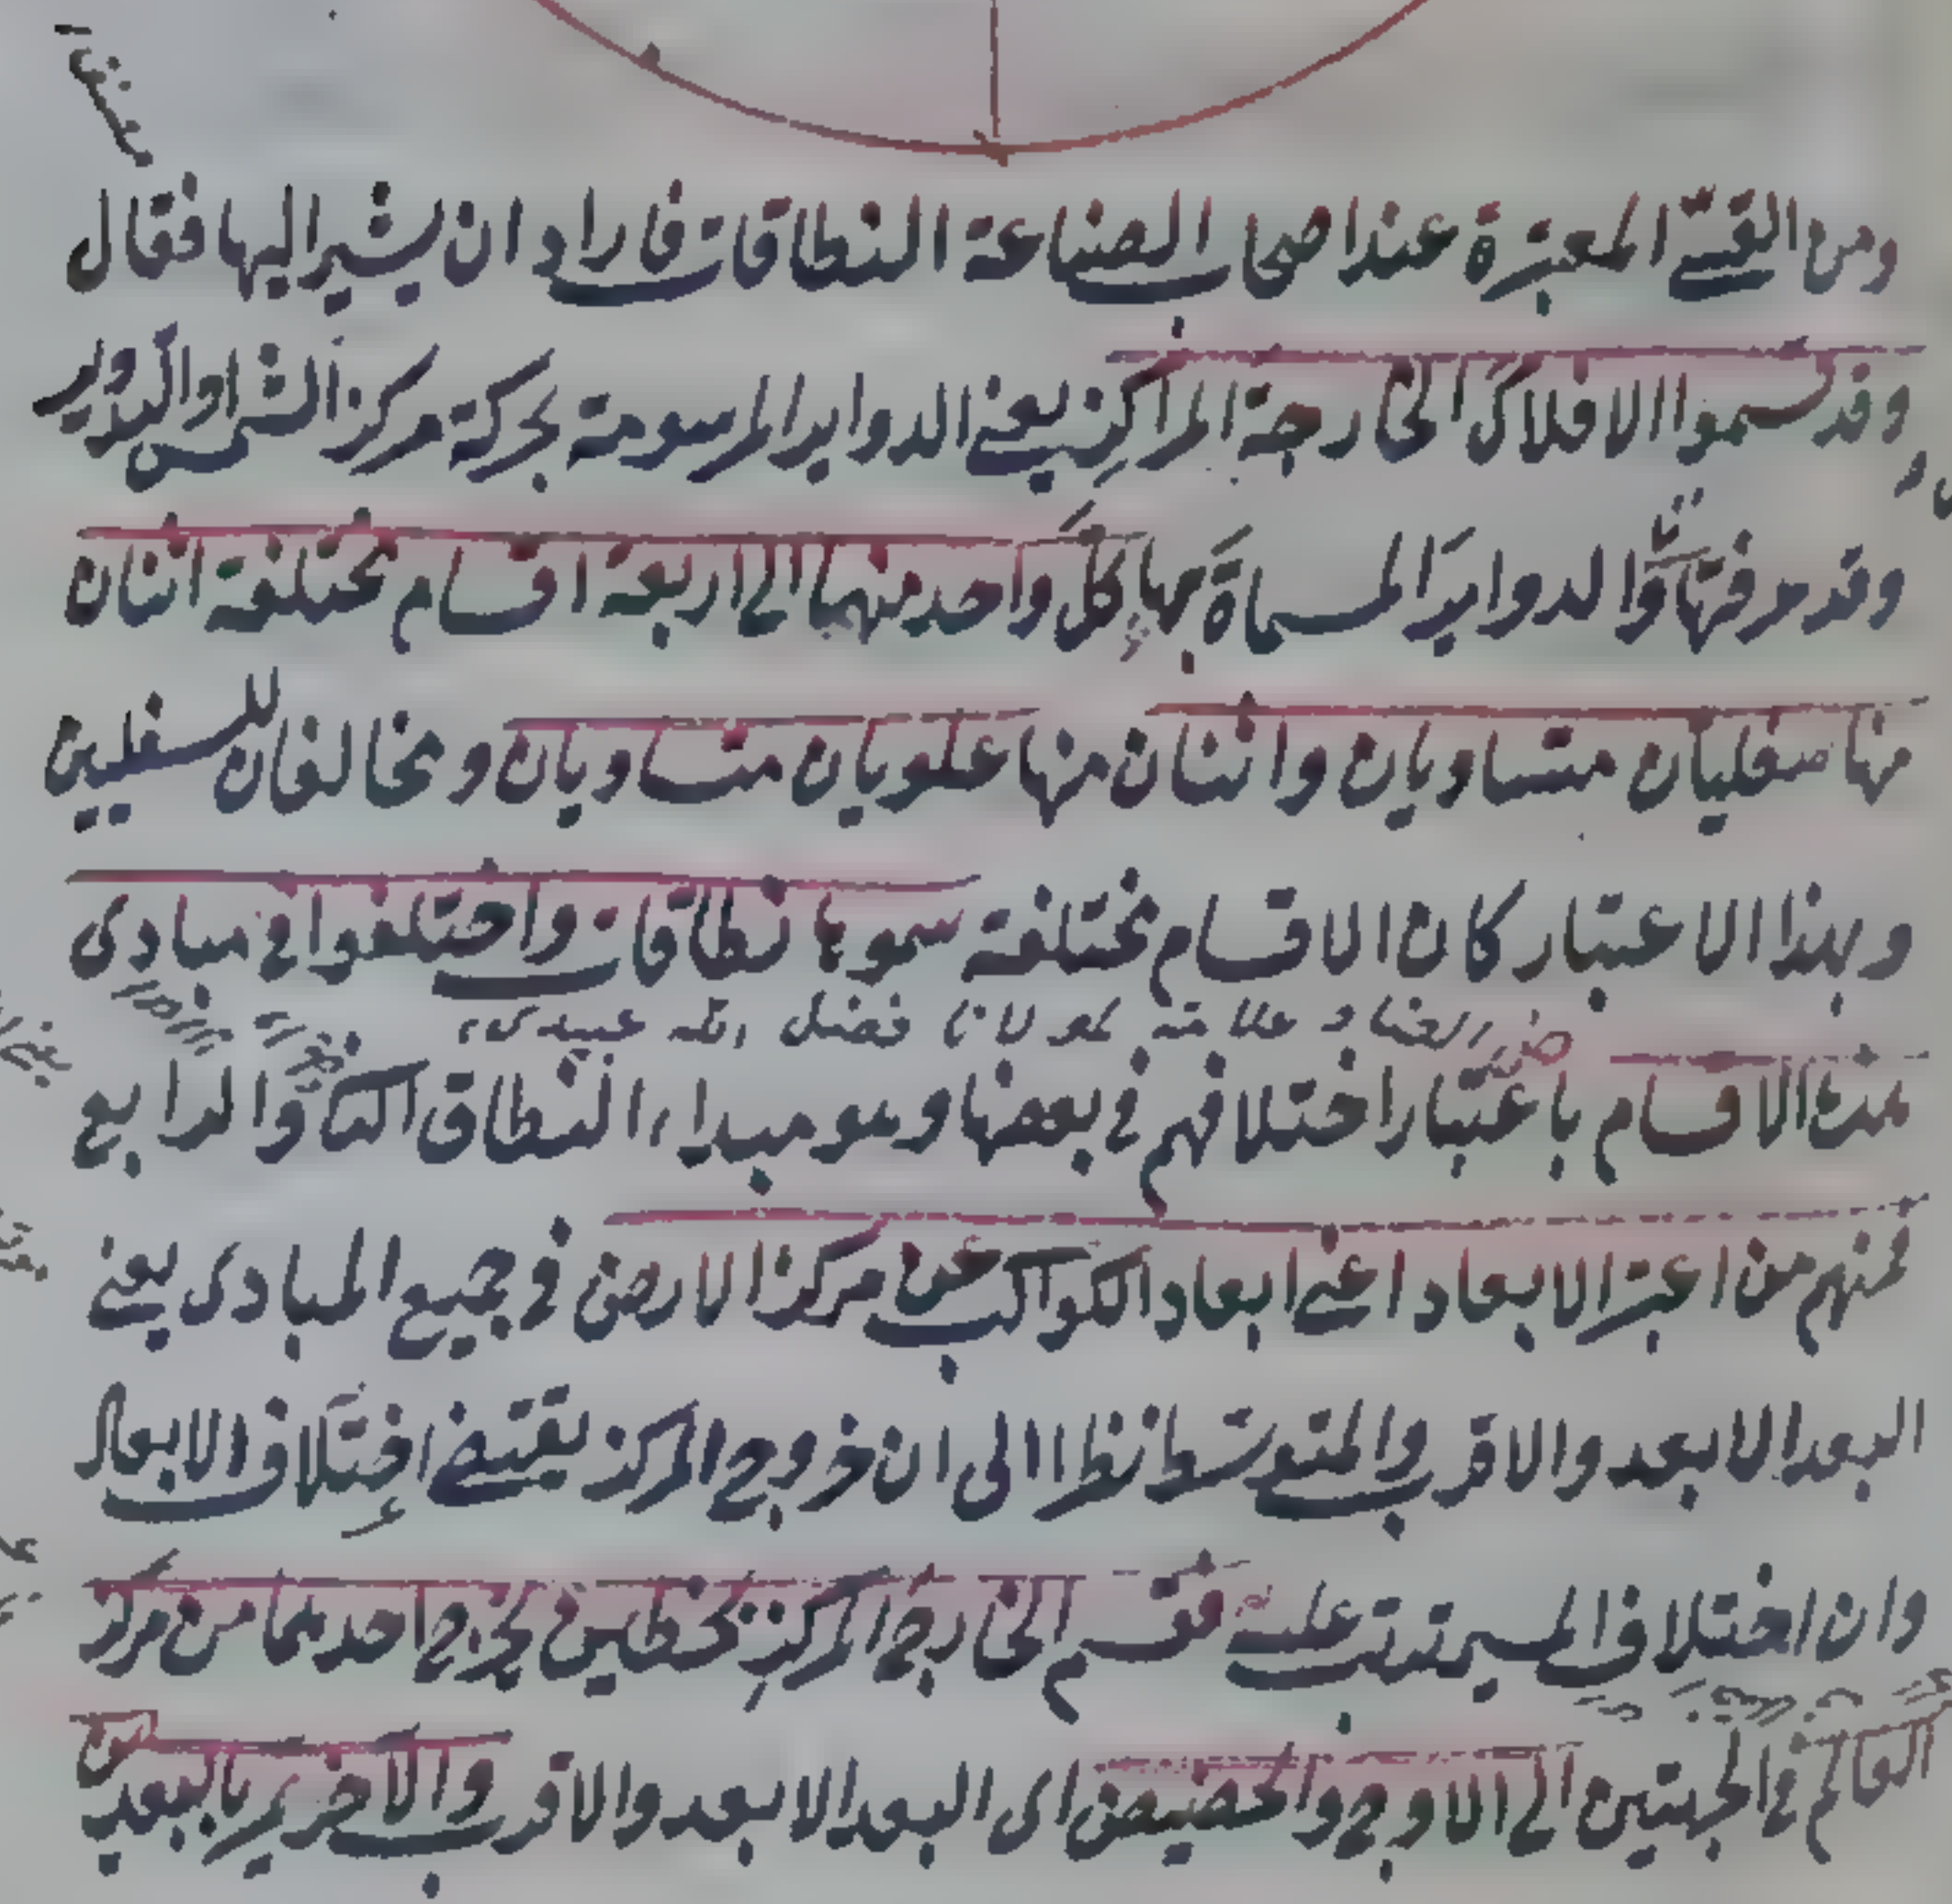 ومن القسي المعتبرة عند اصحاب الصناعة النطاقات فاراد ان يشير اليها فقال
وقد قسموا الافلاك الخارجة المراكز يعني الدواير المرسومة بحركة مركز الشمس او التدوير
وقد عرفتها والدواير المسماة بها كل واحد منهما الى اربعة اقسام مختلفة اثنان
منها سفليان متساويان واثنان منها علويان متساويان ومخالفان للسفليين
وبهذا الاعتبار كان الاقسام مختلفة سموها نطاقات واختلفوا في مبادى
العضا و علامة مولانا فضل الله عبيدى
هذه الاقسام باعتبار اختلافهم في بعضها وهو مبداء النطاق الثاني والرابع
فمنهم من اعتبر الابعاد اعني ابعاد الكواكب عن مركز الارض في جميع المبادى يعني
البعد الابعد والاقرب والمتوسط نظرا الى ان خروج المركز يقتضي اختلاف الابعاد
وان اختلاف المسير ترتب عليه فقسم الخارج المركز بخطين يخرج احدهما من مركز
العالم في الجهتين الى الاوج والحضيض اى البعد الابعد والاقرب والاخر يمر بالبعدين